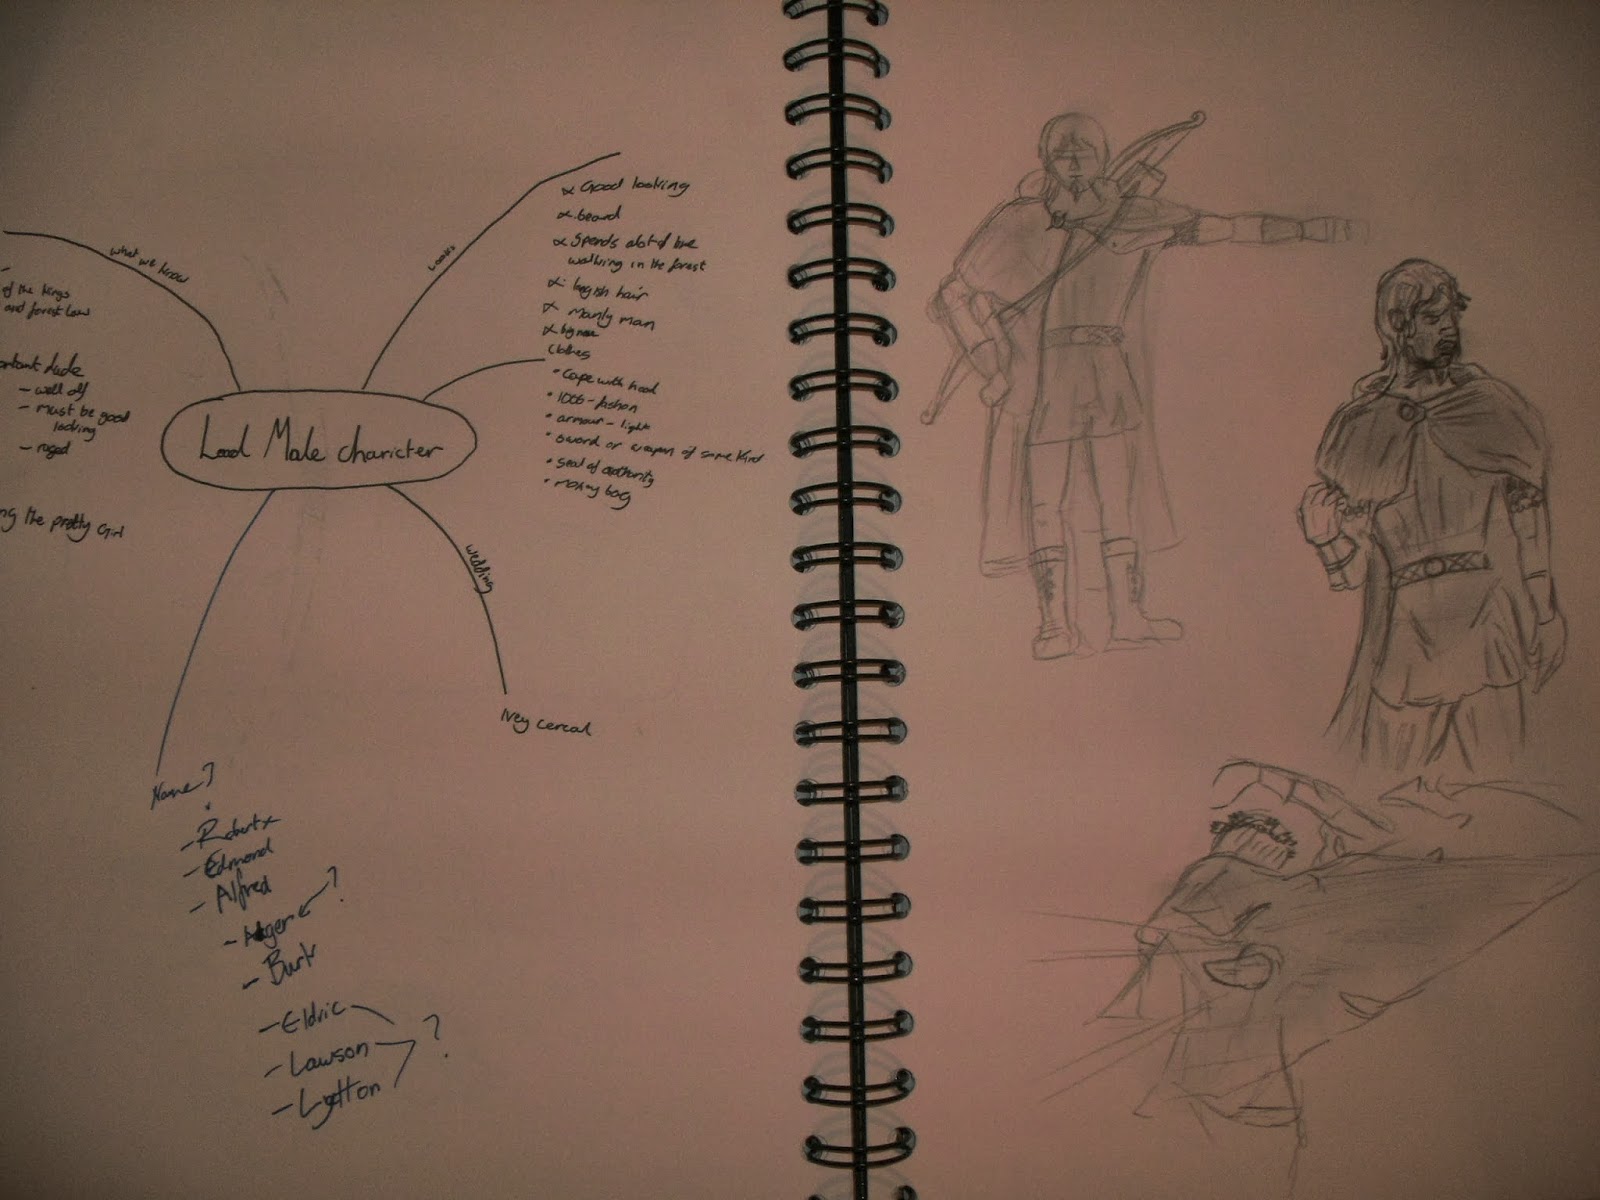 Lead Male charicter
what we know
of the kings
and forest law
ortant dude
- well off
- must be good
looking
- ruged
ng the pretty Girl
Looks
Good looking
beard
Spends alot of time
walking in the forest
longish hair
Manly man
big nose
Clothes
• Cape with hood
• 1066 - fashon
• armour - light
• Sword or weapon of some kind
• Seal of authority
• Money bag
wedding
Ivey cereal
Name?
- Robert x
- Edmond
- Alfred
- Alger ?
- Burt
- Eldric
- Lawson ?
- Lytton